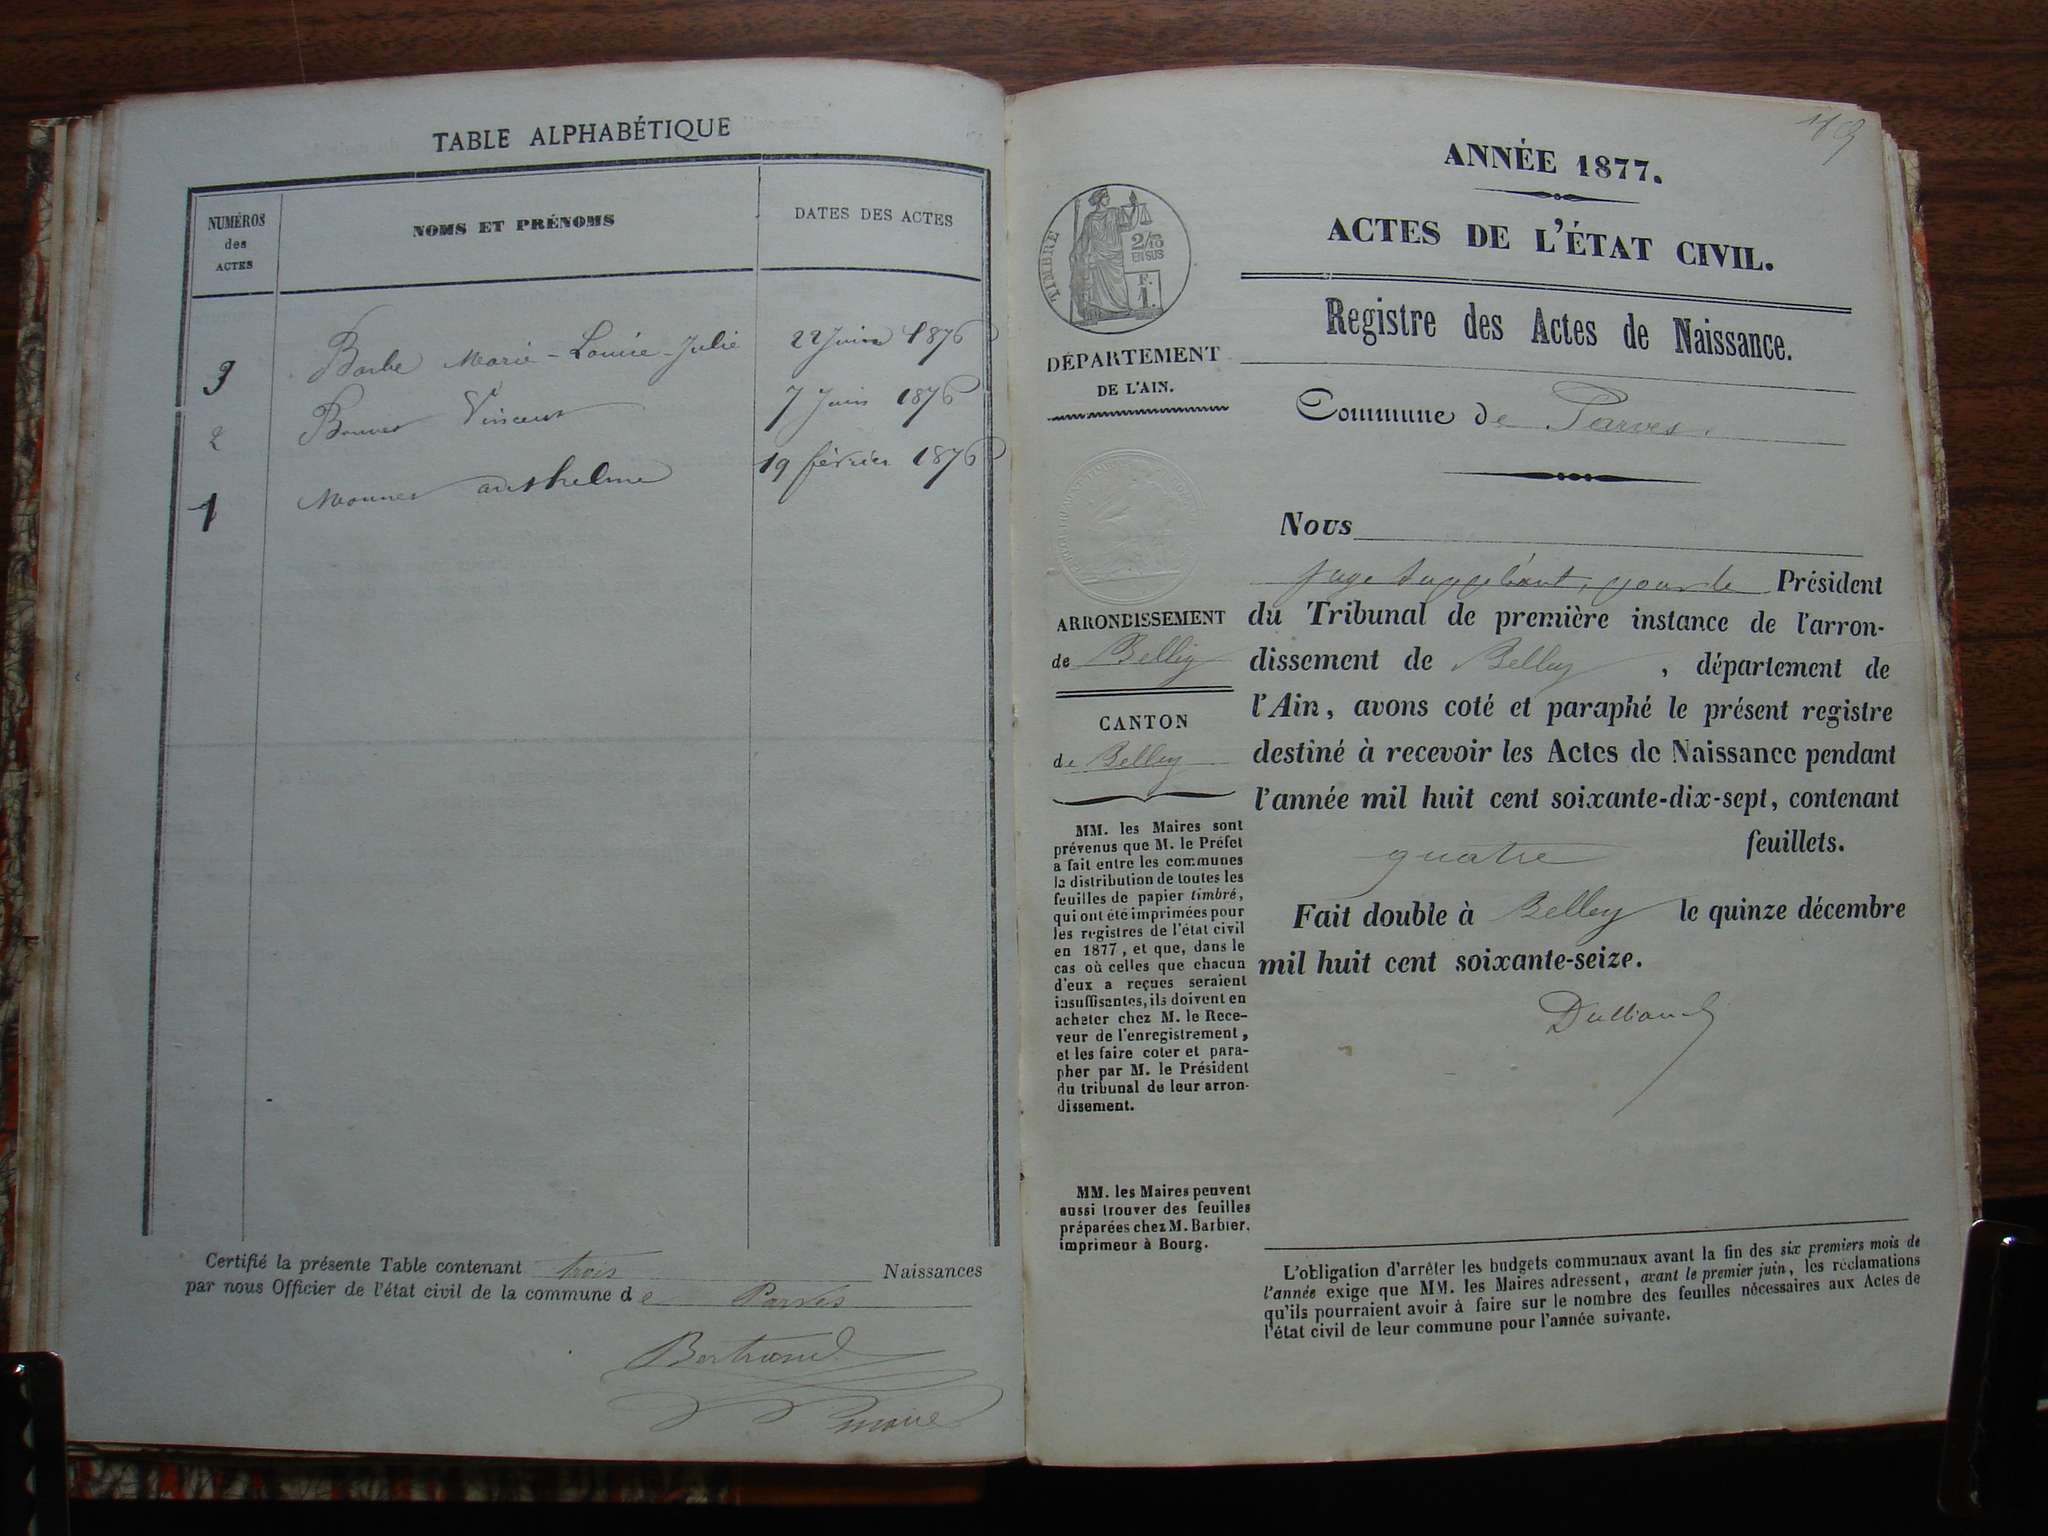 TABLE ALPHABÉTIQUE
NUMÉROS des ACTES
NOMS ET PRÉNOMS
DATES DES ACTES
3 Barbe Marie-Louise-Julie 22 Juin 1876
2 Vincent 7 Juin 1876
1 Monnet anthelme 19 février 1876
Certifié la présente Table contenant trois Naissances
par nous Officier de l'état civil de la commune de Parves
Bertrand
maire
ANNÉE 1877.
ACTES DE L'ÉTAT CIVIL.
Registre des Actes de Naissance.
Commune de Parves.
TIMBRE
2/10
EN SUS
F.
1.
DÉPARTEMENT
DE L'AIN.
ARRONDISSEMENT
de Belley
CANTON
de Belley
MM. les Maires sont
prévenus que M. le Préfet
a fait entre les communes
la distribution de toutes les
feuilles de papier timbré,
qui ont été imprimées pour
les registres de l'état civil
en 1877, et que, dans le
cas où celles que chacun
d'eux a reçues seraient
insuffisantes, ils doivent en
acheter chez M. le Rece-
veur de l'enregistrement,
et les faire coter et para-
pher par M. le Président
du tribunal de leur arron-
dissement.
MM. les Maires peuvent
aussi trouver des feuilles
préparées chez M. Barbier,
imprimeur à Bourg.
Nous
juge suppléant, pour le Président
du Tribunal de première instance de l'arron-
dissement de Belley, département de
l'Ain, avons coté et paraphé le présent registre
destiné à recevoir les Actes de Naissance pendant
l'année mil huit cent soixante-dix-sept, contenant
quatre feuillets.
Fait double à Belley le quinze décembre
mil huit cent soixante-seize.
L'obligation d'arrêter les budgets communaux avant la fin des six premiers mois de
l'année exige que MM. les Maires adressent, avant le premier juin, les réclamations
qu'ils pourraient avoir à faire sur le nombre des feuilles nécessaires aux Actes de
l'état civil de leur commune pour l'année suivante.